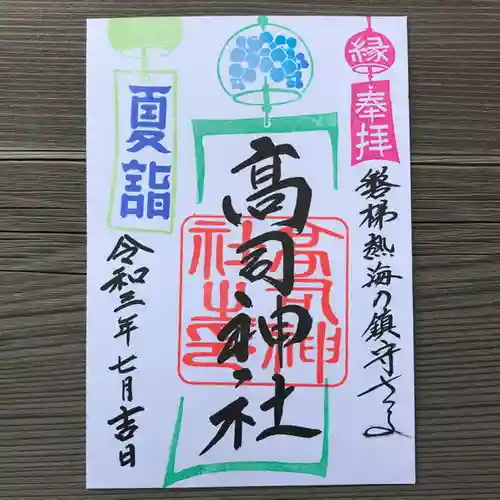 縁
奉拝
磐梯熱海の鎮守さま
高司神社
高司神社之印
夏詣
令和三年七月吉日